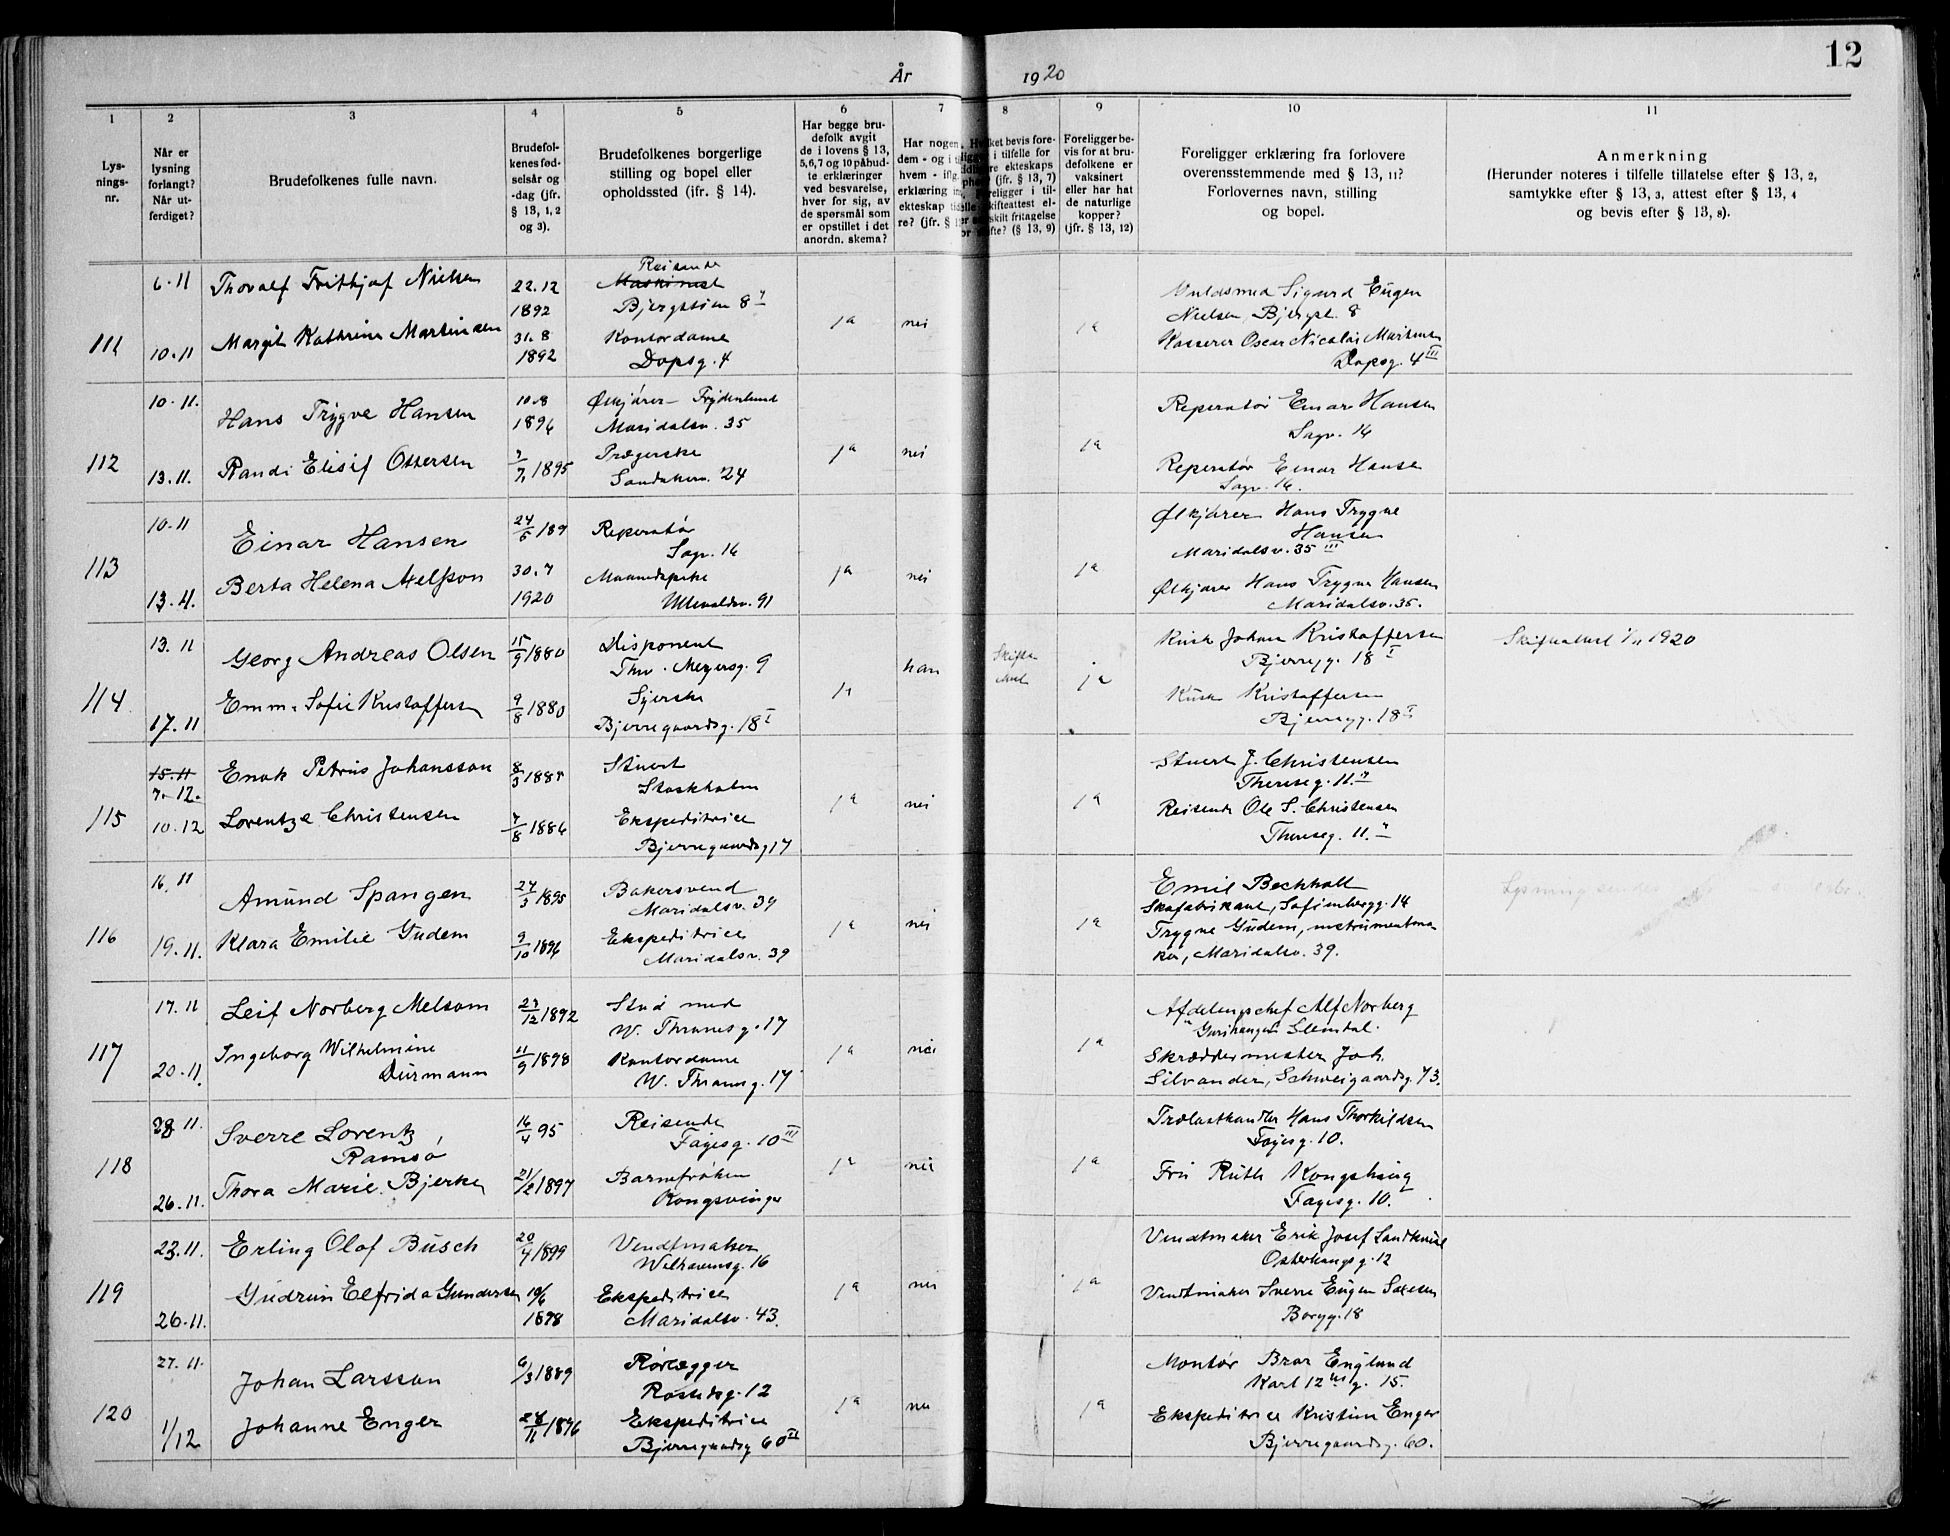 År 1920
12
1 2 3 4 5 6 7 8 9 10 11
Lys-
nings-
nr.
Når er
lysning
forlangt?
Når ut-
ferdiget?
Brudefolkenes fulle navn.
Brudefol-
kenes fød-
selsår og
-dag (jfr.
§ 13, 1, 2
og 3).
Brudefolkenes borgerlige
stilling og bopel eller
opholdssted (ifr. § 14).
Har begge bru-
defolk avgit
de i lovens § 13,
5, 6, 7 og 10 påbud-
te erklæringer
ved besvarelse,
hver for sig, av
de spørsmål som
er opstillet i det
anordn. skema?
Har nogen
dem - og i
hvem - ifl.
erklæring
ekteskap
re? (jfr. §
ket bevis fore-
i tilfelle for
re ekteskaps
? (jfr. § 13, 7)
religger i til-
kifteattest el-
skilt fritagelse
fte? (§ 13, 9)
Foreligger be-
vis for at bru-
defolkene er
vaksinert
eller har hat
de naturlige
kopper?
(jfr. § 13, 12)
Foreligger erklæring fra forlovere
overensstemmende med § 13, 11?
Forlovernes navn, stilling
og bopel.
Anmerkning
(Herunder noteres i tilfelle tillatelse efter § 13, 2,
samtykke efter § 13, 3, attest efter § 13, 4
og bevis efter § 13, 8).
111
6.11
10.11
Thoralf Frithjof Nielsen
Margit Kathrine Martinsen
22.12
1892
31.8
1892
Reisende
Maskinist
Bjergstien 8
Kontordame
Dopsg. 4
ja nei ja
Guldsmed Sigurd Eugen
Nielsen, Bjergst. 8
Kasserer Oscar Nicolai Martinsen
Dopsg. 4 III
112
10.11.
13.11.
Hans Trygve Hansen
Randi Elisif Ottersen
10.8
1896
7/7 1895
Ølkjører - Frydenlund
Maridalsv. 35
Prægerske
Sandakerv. 24
ja nei ja
Reperatør Einar Hansen
Sagv. 16
Reperatør Einar Hansen
Sagv. 16.
113
10.11
13.11.
Einar Hansen
Berta Helena Axelsson
24/5 189
30.7
1920
Reperatør
Sagv. 16
Ullevaldsv. 91
ja nei ja
Ølkjører Hans Trygve
Hansen
Maridalsv. 35 III
Ølkjører Hans Trygve Hansen
Maridalsv. 35.
114
13.11
17.11
Georg Andreas Olsen
Emma Sofie Kristoffersen
15/9 1880
9/8 1880
Disponent
Thv. Meyersg. 9
Syerske
Bjerregaardsg. 18 I
ja han ja
Kusk Johan Kristoffersen
Bjerregg. 18 I
Kusk Kristoffersen
Bjerregg. 18 I
1920
115
15.11
7.12.
10.12
Enok Petrus Johansson
Lorentze Christensen
8/3 1885
7/8 1886
Stuert
Stockholm
Ekspeditrice
Bjerregaardsg 17
ja nei ja
Stuert J. Christensen
Thereseg. 11.
Reisende Ole S. Christensen
Thereseg. 11.
116
16.11
19.11.
Amund Spangen
Klara Emilie Gudem
24/3 1895
9/10 1896
Bakersvend
Maridalsv. 39
Ekspeditrice
Maridalsv. 39
ja nei ja
Emil Bechholt
Skofabrikant, Sofienbergg. 14
Trygve Gudem, instrumentma
ker, Maridalsv. 39.
117
17.11
20.11.
Leif Norberg Melsom
Ingeborg Wilhelmine
Durmann
27/12 1892
11/9 1898
Stud med
W. Thranesg. 17
Kontordame
W. Thranesg. 17
ja nei ja
Afdelingschef Alf Norberg
Slemdal.
Skræddermester Joh.
Silvander, Schweigaardsg. 73.
118
23.11.
26.11.
Sverre Lorentz
Ramsø
Thora Marie Bjerke
16/4 95
21/2 1897
Reisende
Fagesg. 10 III
Barnefrøken
Kongsvinger
ja nei ja
Trelasthandler Hans Thorkildsen
Fagesg. 10.
Fru Ruth Kongshaug
Fagesg. 10.
119
23.11.
26.11.
Erling Olaf Busch
Gudrun Elfrida Gundersen
20/4 1899
19/6
1898
Vendtmaker
Welhavensg. 16
Ekspeditrice
Maridalsv. 43.
ja nei ja
Vendtmaker Erik Josef Landkvist
Osterhausg. 12
Vendtmaker Sverre Eugen
Borgg. 18
120
27.11.
1/12
Johan Larsson
Johanne Enger
6/3 1889
28/11 1896
Rørlegger
Rostedsg. 12
Ekspeditrice
Bjerregaardsg 60 II
ja nei ja
Montør Bror Englund
Karl 12 tes g. 15.
Ekspeditrice Kristine Enger
Bjerregaardsg. 60.